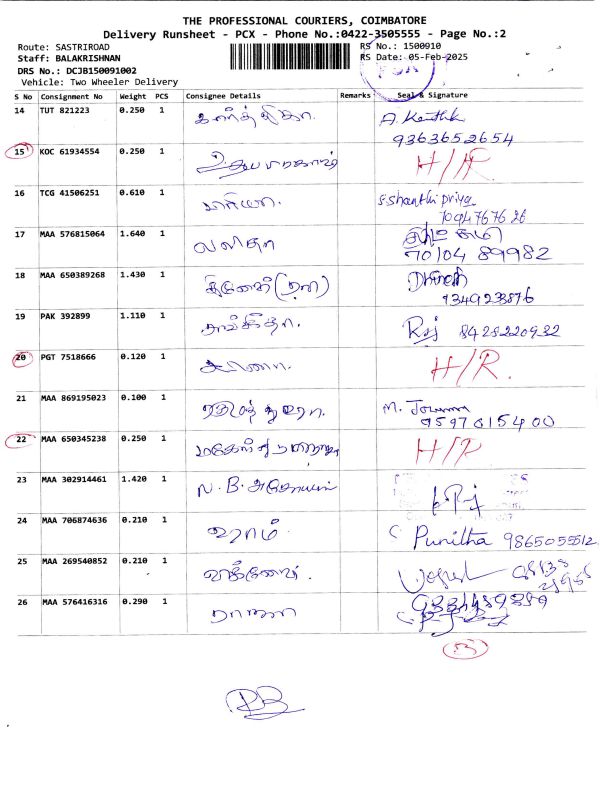 THE PROFESSIONAL COURIERS, COIMBATORE
Delivery Runsheet - PCX - Phone No.:0422-3505555 - Page No.:2
Route: SASTRIROAD RS No.: 1500910
Staff: BALAKRISHNAN RS Date: 05-Feb-2025
DRS No.: DCJB150091002
Vehicle: Two Wheeler Delivery
S No Consignment No Weight PCS Consignee Details Remarks Seal & Signature
14 TUT 821223 0.250 1 கார்த்திகா A. Karthik
9363652654
15 KOC 61934554 0.250 1 உதயபிரகாஷ் H/R
16 TCG 41506251 0.610 1 பிரியா S. Shanthi priya
70947676 26
17 MAA 576815064 1.640 1 லலிதா
70104 89982
18 MAA 650389268 1.430 1 தினேஷ் Dhinesh
934923876
19 PAK 392899 1.110 1 Raj 8428220932
20 PGT 7518666 0.120 1 H/R.
21 MAA 869195023 0.100 1 M.
95970 15400
22 MAA 650345238 0.250 1 H/R
23 MAA 302914461 1.420 1 N. B. அசோபன்
24 MAA 706874636 0.210 1 C Punitha 9865055512
25 MAA 269540852 0.210 1 விக்னேஷ்
26 MAA 576416316 0.290 1 ராஜா